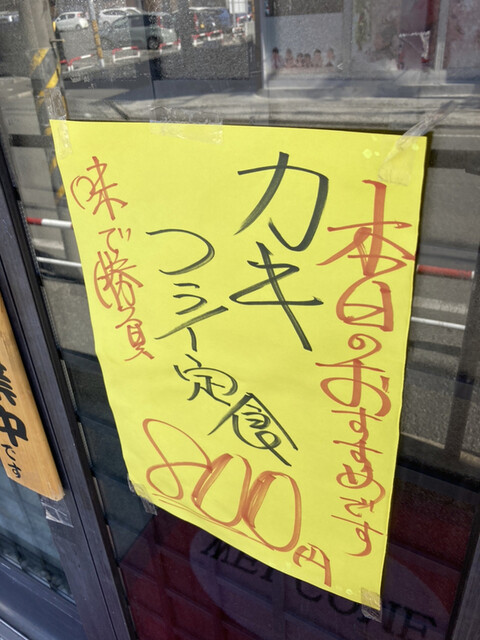 本日のおすすめです
カキ
フライ定食
800円
味で勝負
WELCOME